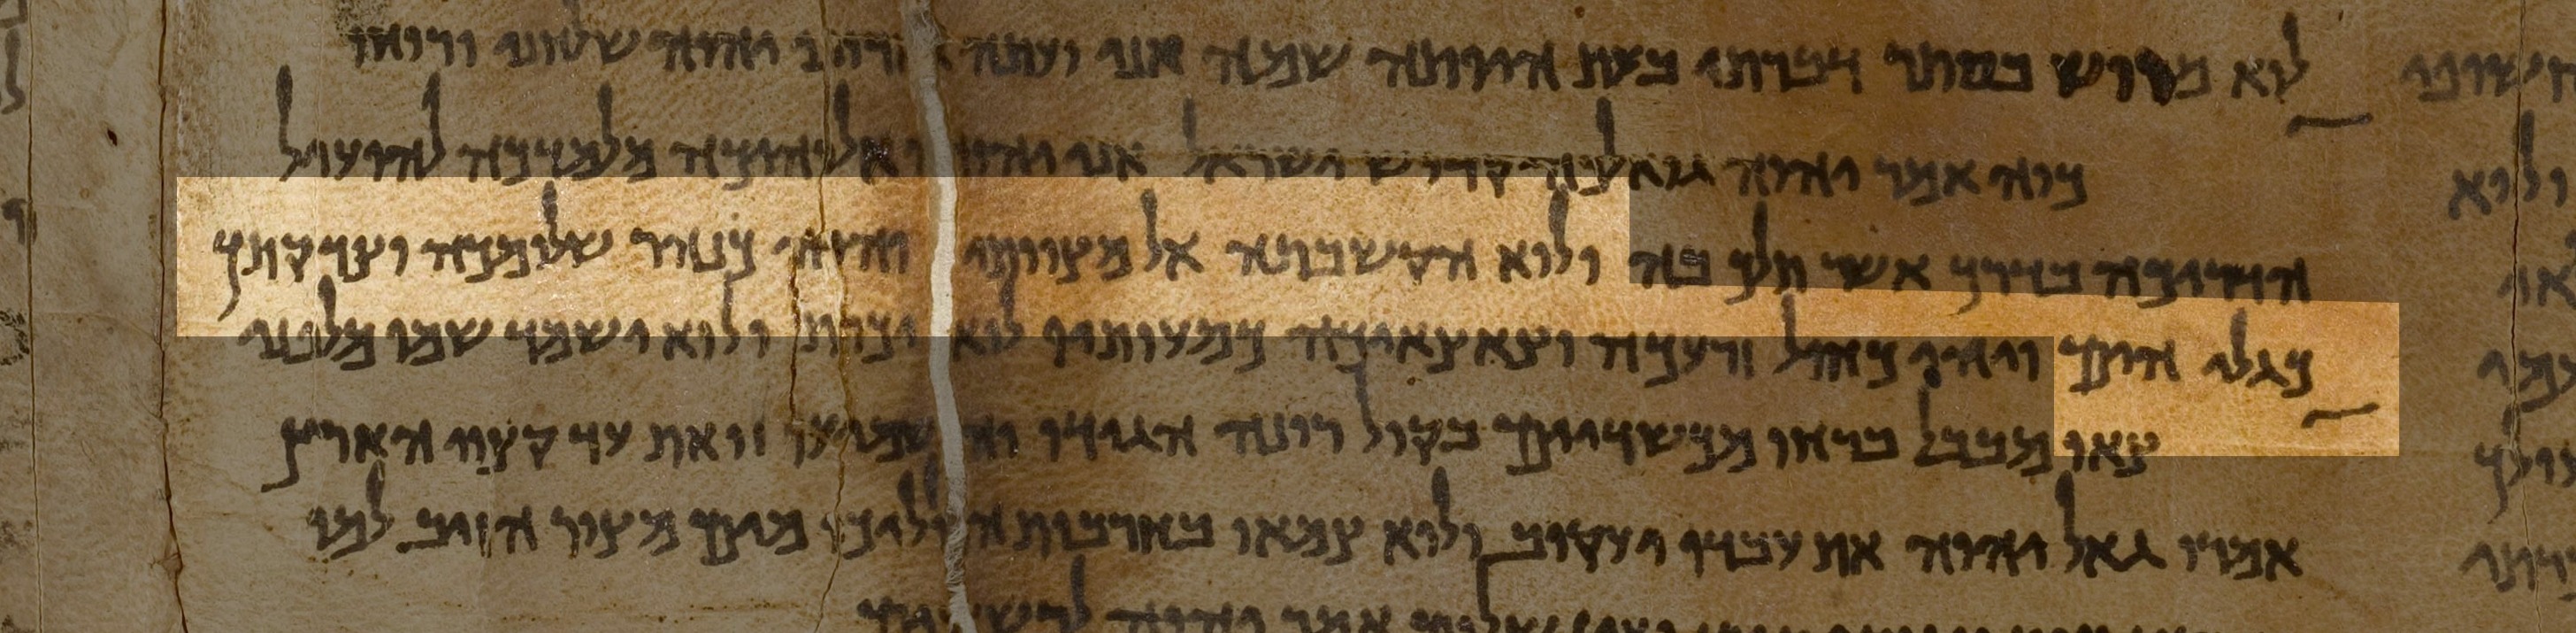 לוא מרוש בסתר דברתי בעת היותה שמה אני ועתה אדוני יהוה שלחני ורוחו
כוה אמר יהוה גואלכה קדוש ישראל אני יהוה אלוהיכה מלמדכה להועיל
הדריכה בדרך אשר תלך בה ולוא הקשבתה אל מצוותי והיה כנהר שלומכה וצדקתך
כגלי הים ויהי כחול זרעכה וצאצאיכה כמעותיו לוא יכרת ולוא ישמד שמו מלפני
צאו מבבל ברחו מכשדיים בקול רינה הגידו והשמיעו זואת עד קצוי הארץ
אמרו גאל יהוה את עבדו יעקוב ולוא צמאו בחרבות הוליכו מים מצור הזיב למו
אמר יהוה